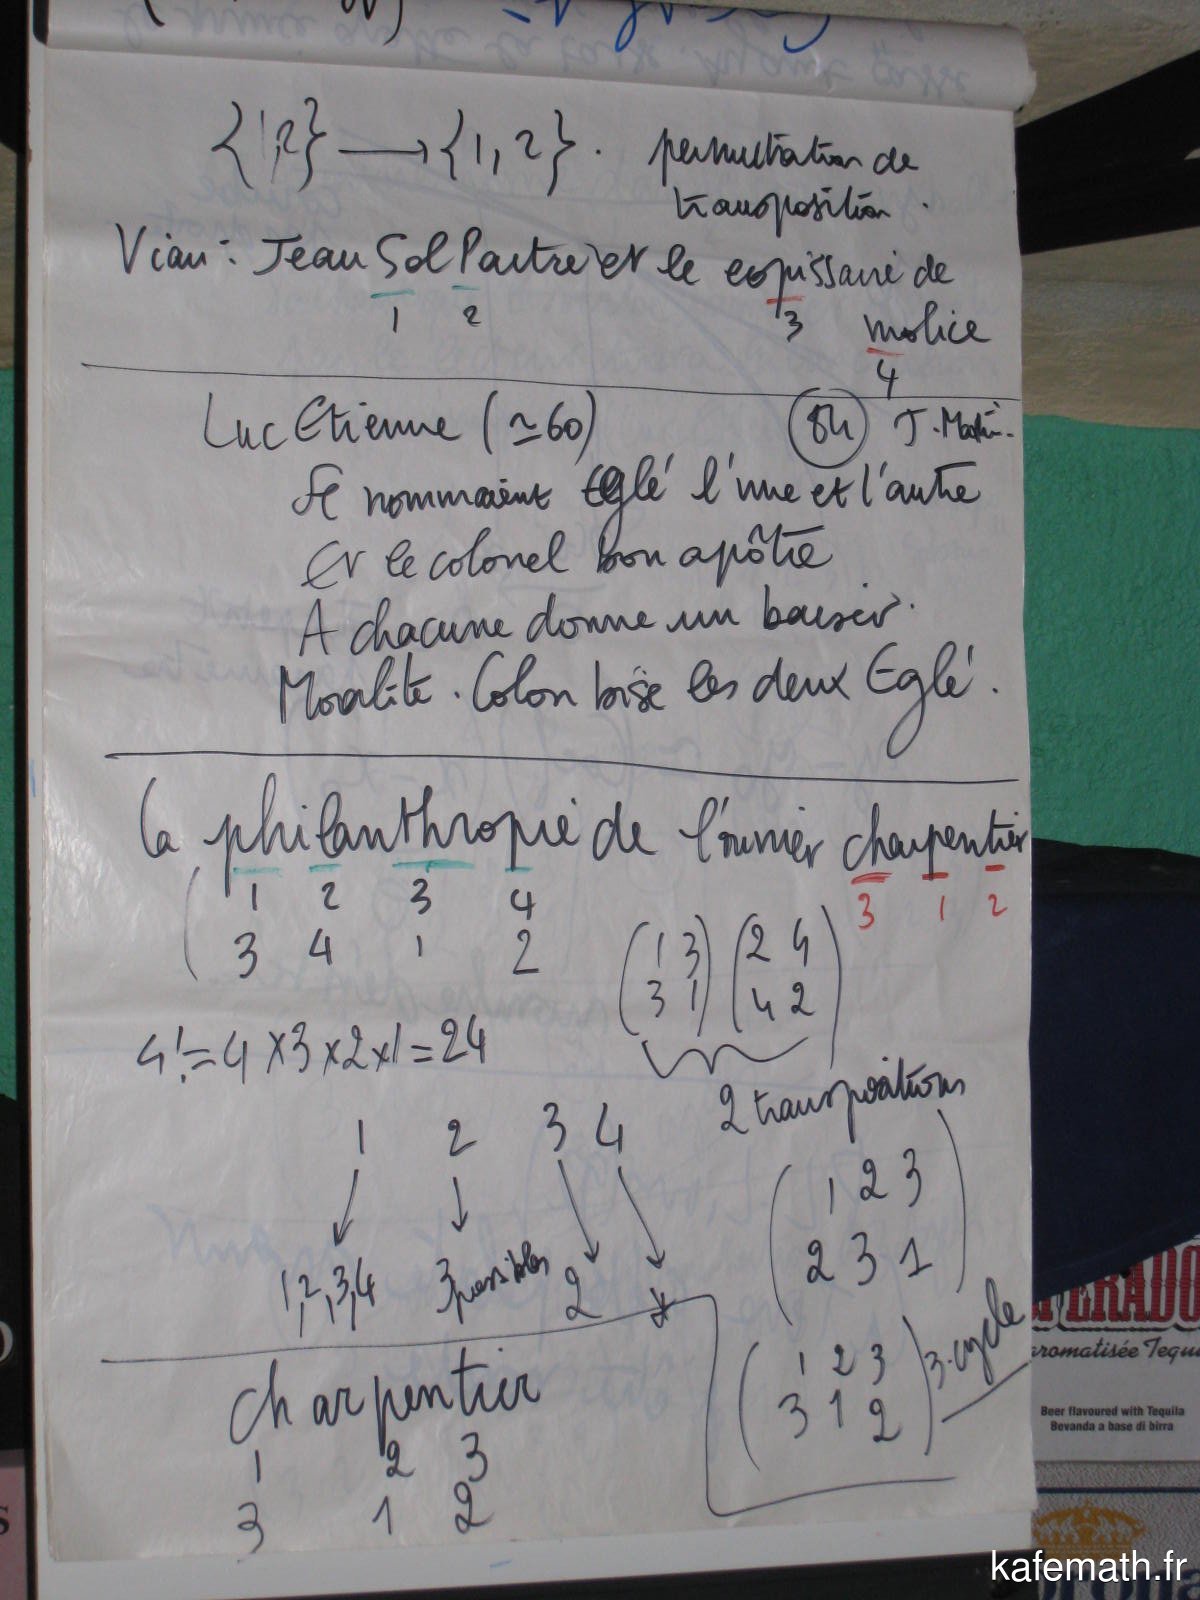 {1,2} → {1,2}. permutation de
transposition.
Vian: Jean Sol Partre et le copissaire de
1 2 3
molice
4
Luc Etienne (≃60) 84 J. Martin.
Se nommaient Eglé l'une et l'autre
Et le colonel bon apôtre
A chacune donne un baiser.
Moralité. Colon bise les deux Eglé.
la philanthropie de l'ouvrier charpentier
1 2 3 4 3 1 2
3 4 1 2
(1 3) (2 4)
(3 1) (4 2)
4! = 4 x 3 x 2 x 1 = 24
2 transpositions
1 2 3 4
1,2,3,4 3 possibles 2
(1 2 3)
(2 3 1)
(1 2 3) 3-cycle
(3 1 2)
charpentier
1 2 3
3 1 2
PERADO
aromatisée Tequ
Beer flavoured with Tequila
Bevanda a base di birra
kafemath.fr